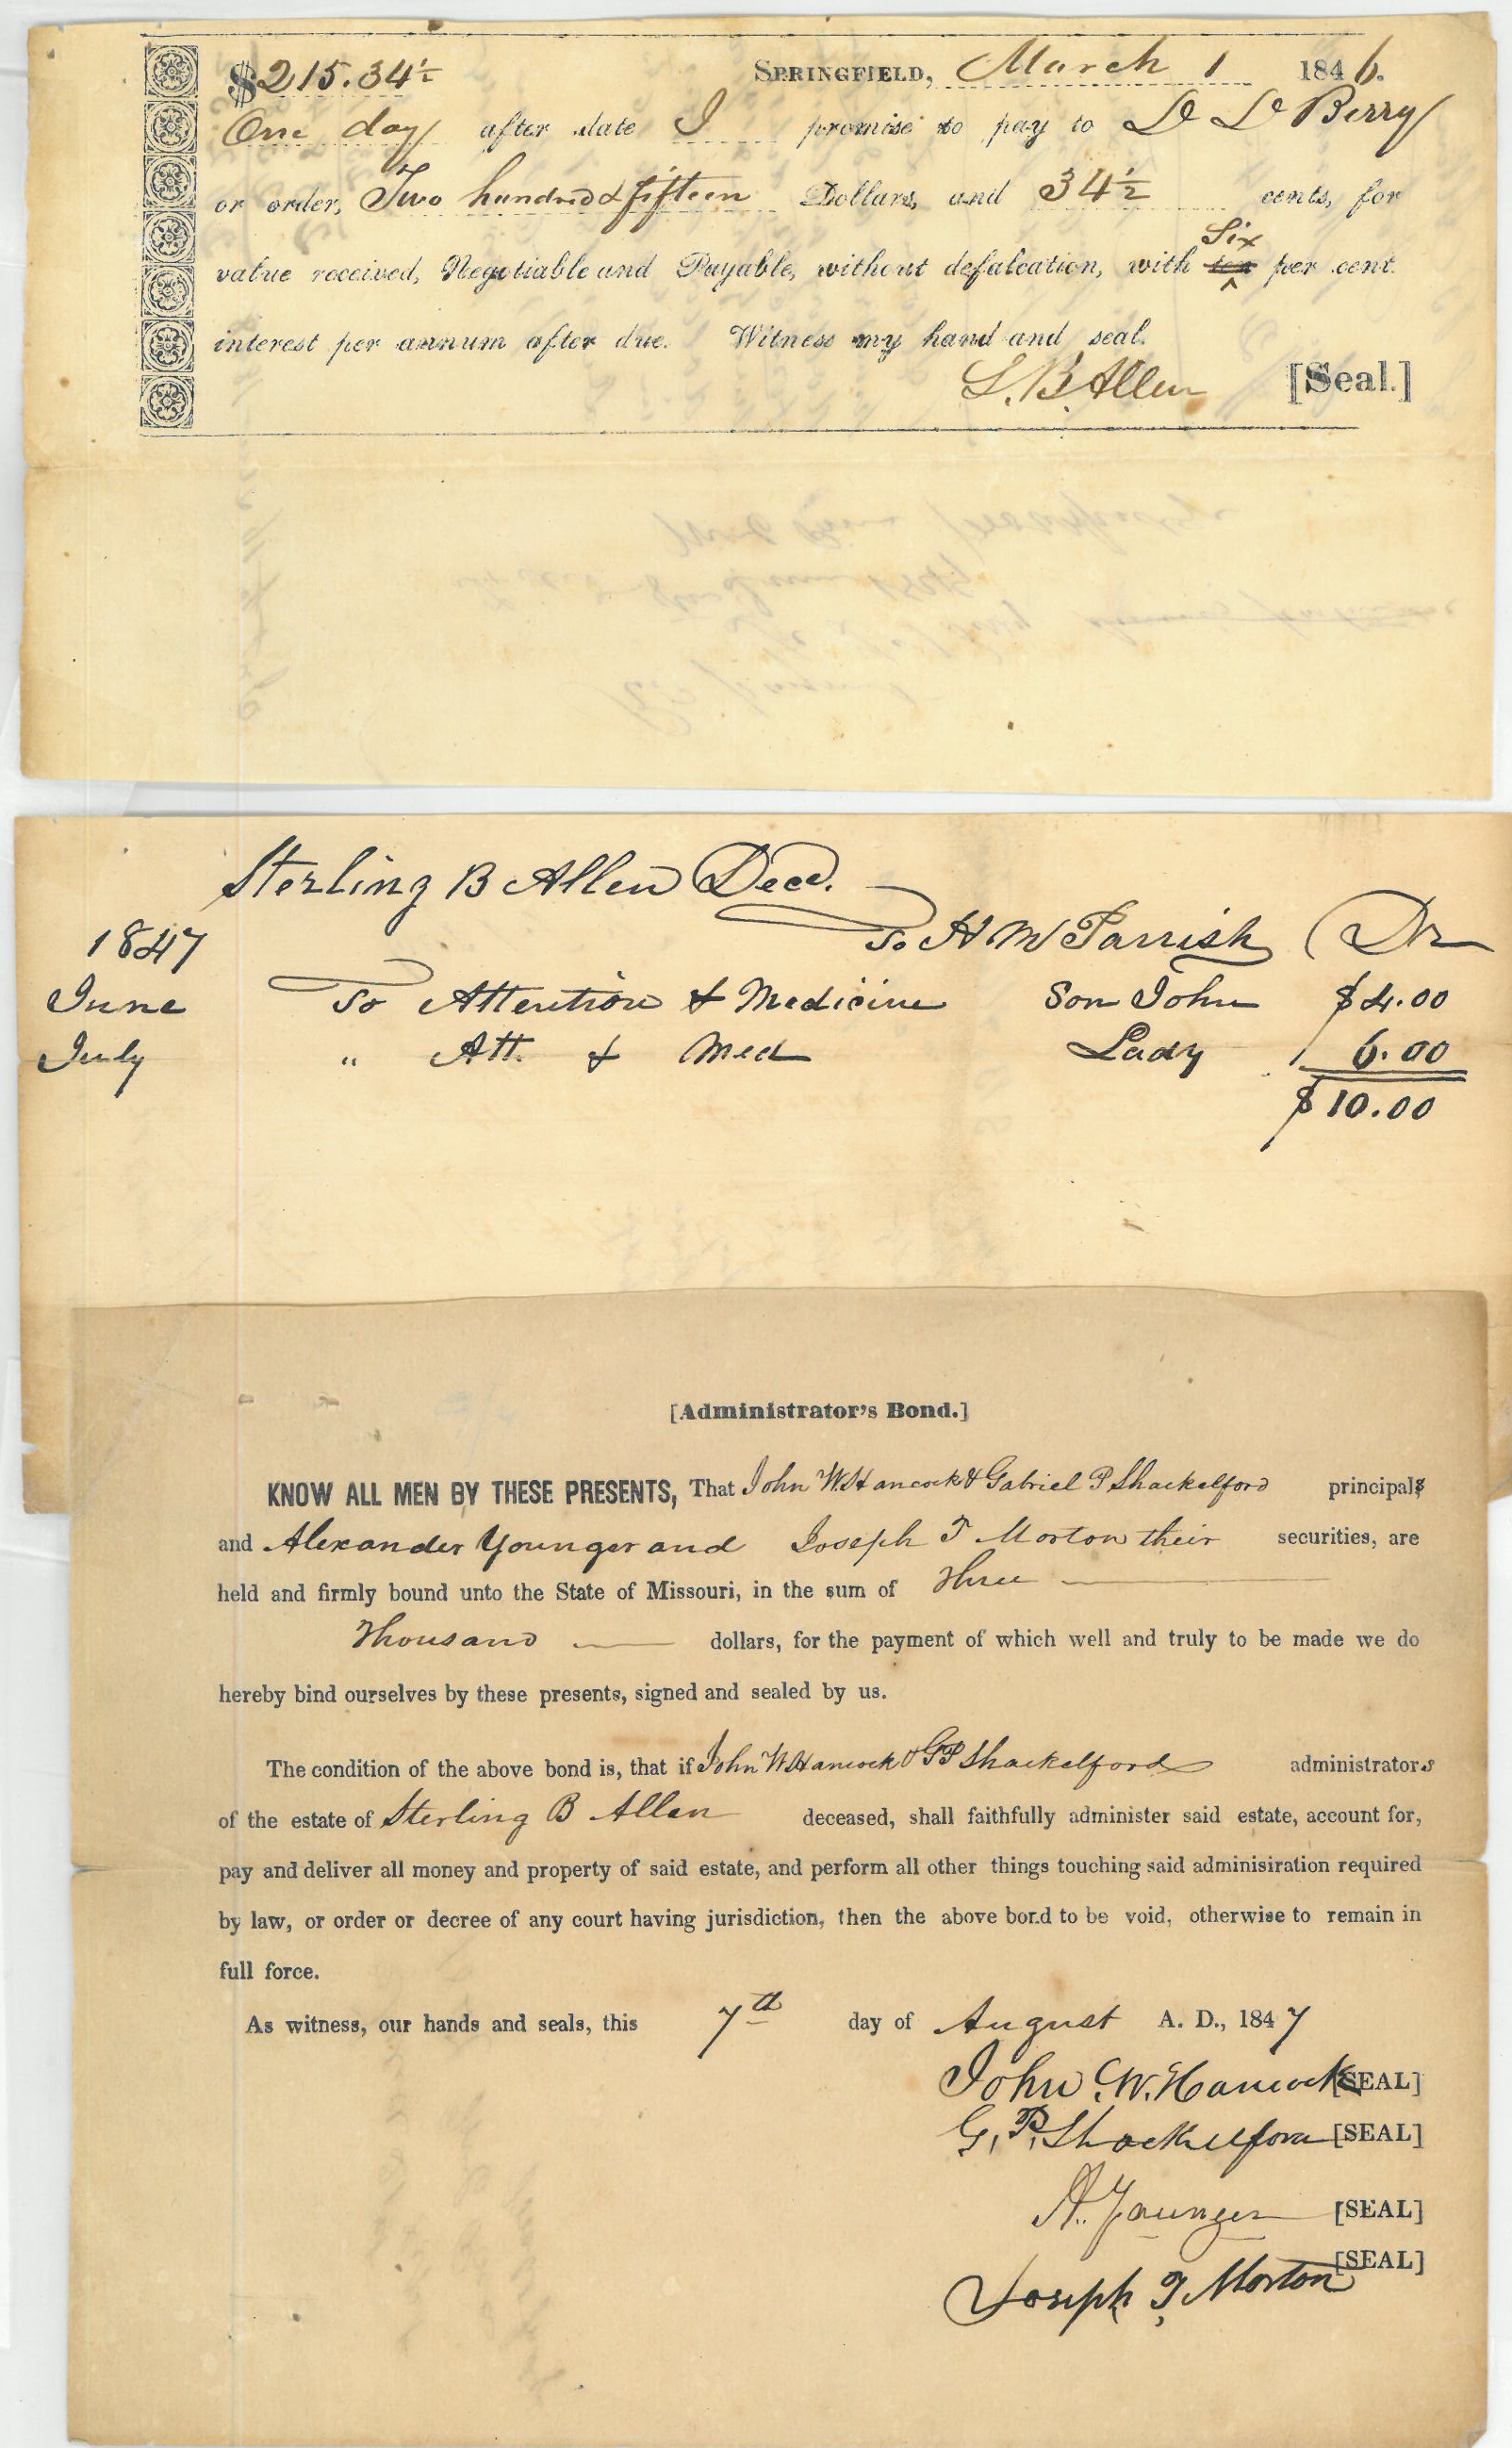 $215.34½ SPRINGFIELD, March 1 1846.
One day after date I promise to pay to D D Berry
or order, Two hundred & fifteen Dollars, and 34½ cents, for
Six
value received, Negotiable and Payable, without defalcation, with ten per cent.
interest per annum after due. Witness my hand and seal.
S. B. Allen [Seal.]
Sterling B Allen Decd.
To H M Parrish Dr
1847
June To Attention & Medicine Son John $4.00
July " Att. & Med Lady 6.00
$10.00
[Administrator's Bond.]
KNOW ALL MEN BY THESE PRESENTS, That John W. Hancock & Gabriel P Shackelford principals
and Alexander Younger and Joseph T Morton their securities, are
held and firmly bound unto the State of Missouri, in the sum of Three
Thousand dollars, for the payment of which well and truly to be made we do
hereby bind ourselves by these presents, signed and sealed by us.
The condition of the above bond is, that if John W Hancock & GP Shackelford administrators
of the estate of Sterling B Allen deceased, shall faithfully administer said estate, account for,
pay and deliver all money and property of said estate, and perform all other things touching said adminisiration required
by law, or order or decree of any court having jurisdiction, then the above bond to be void, otherwise to remain in
full force.
As witness, our hands and seals, this 7th day of August A. D., 1847
John W. Hancock [SEAL]
G. P. Shackelford [SEAL]
A. Younger [SEAL]
[SEAL]
Joseph T. Morton